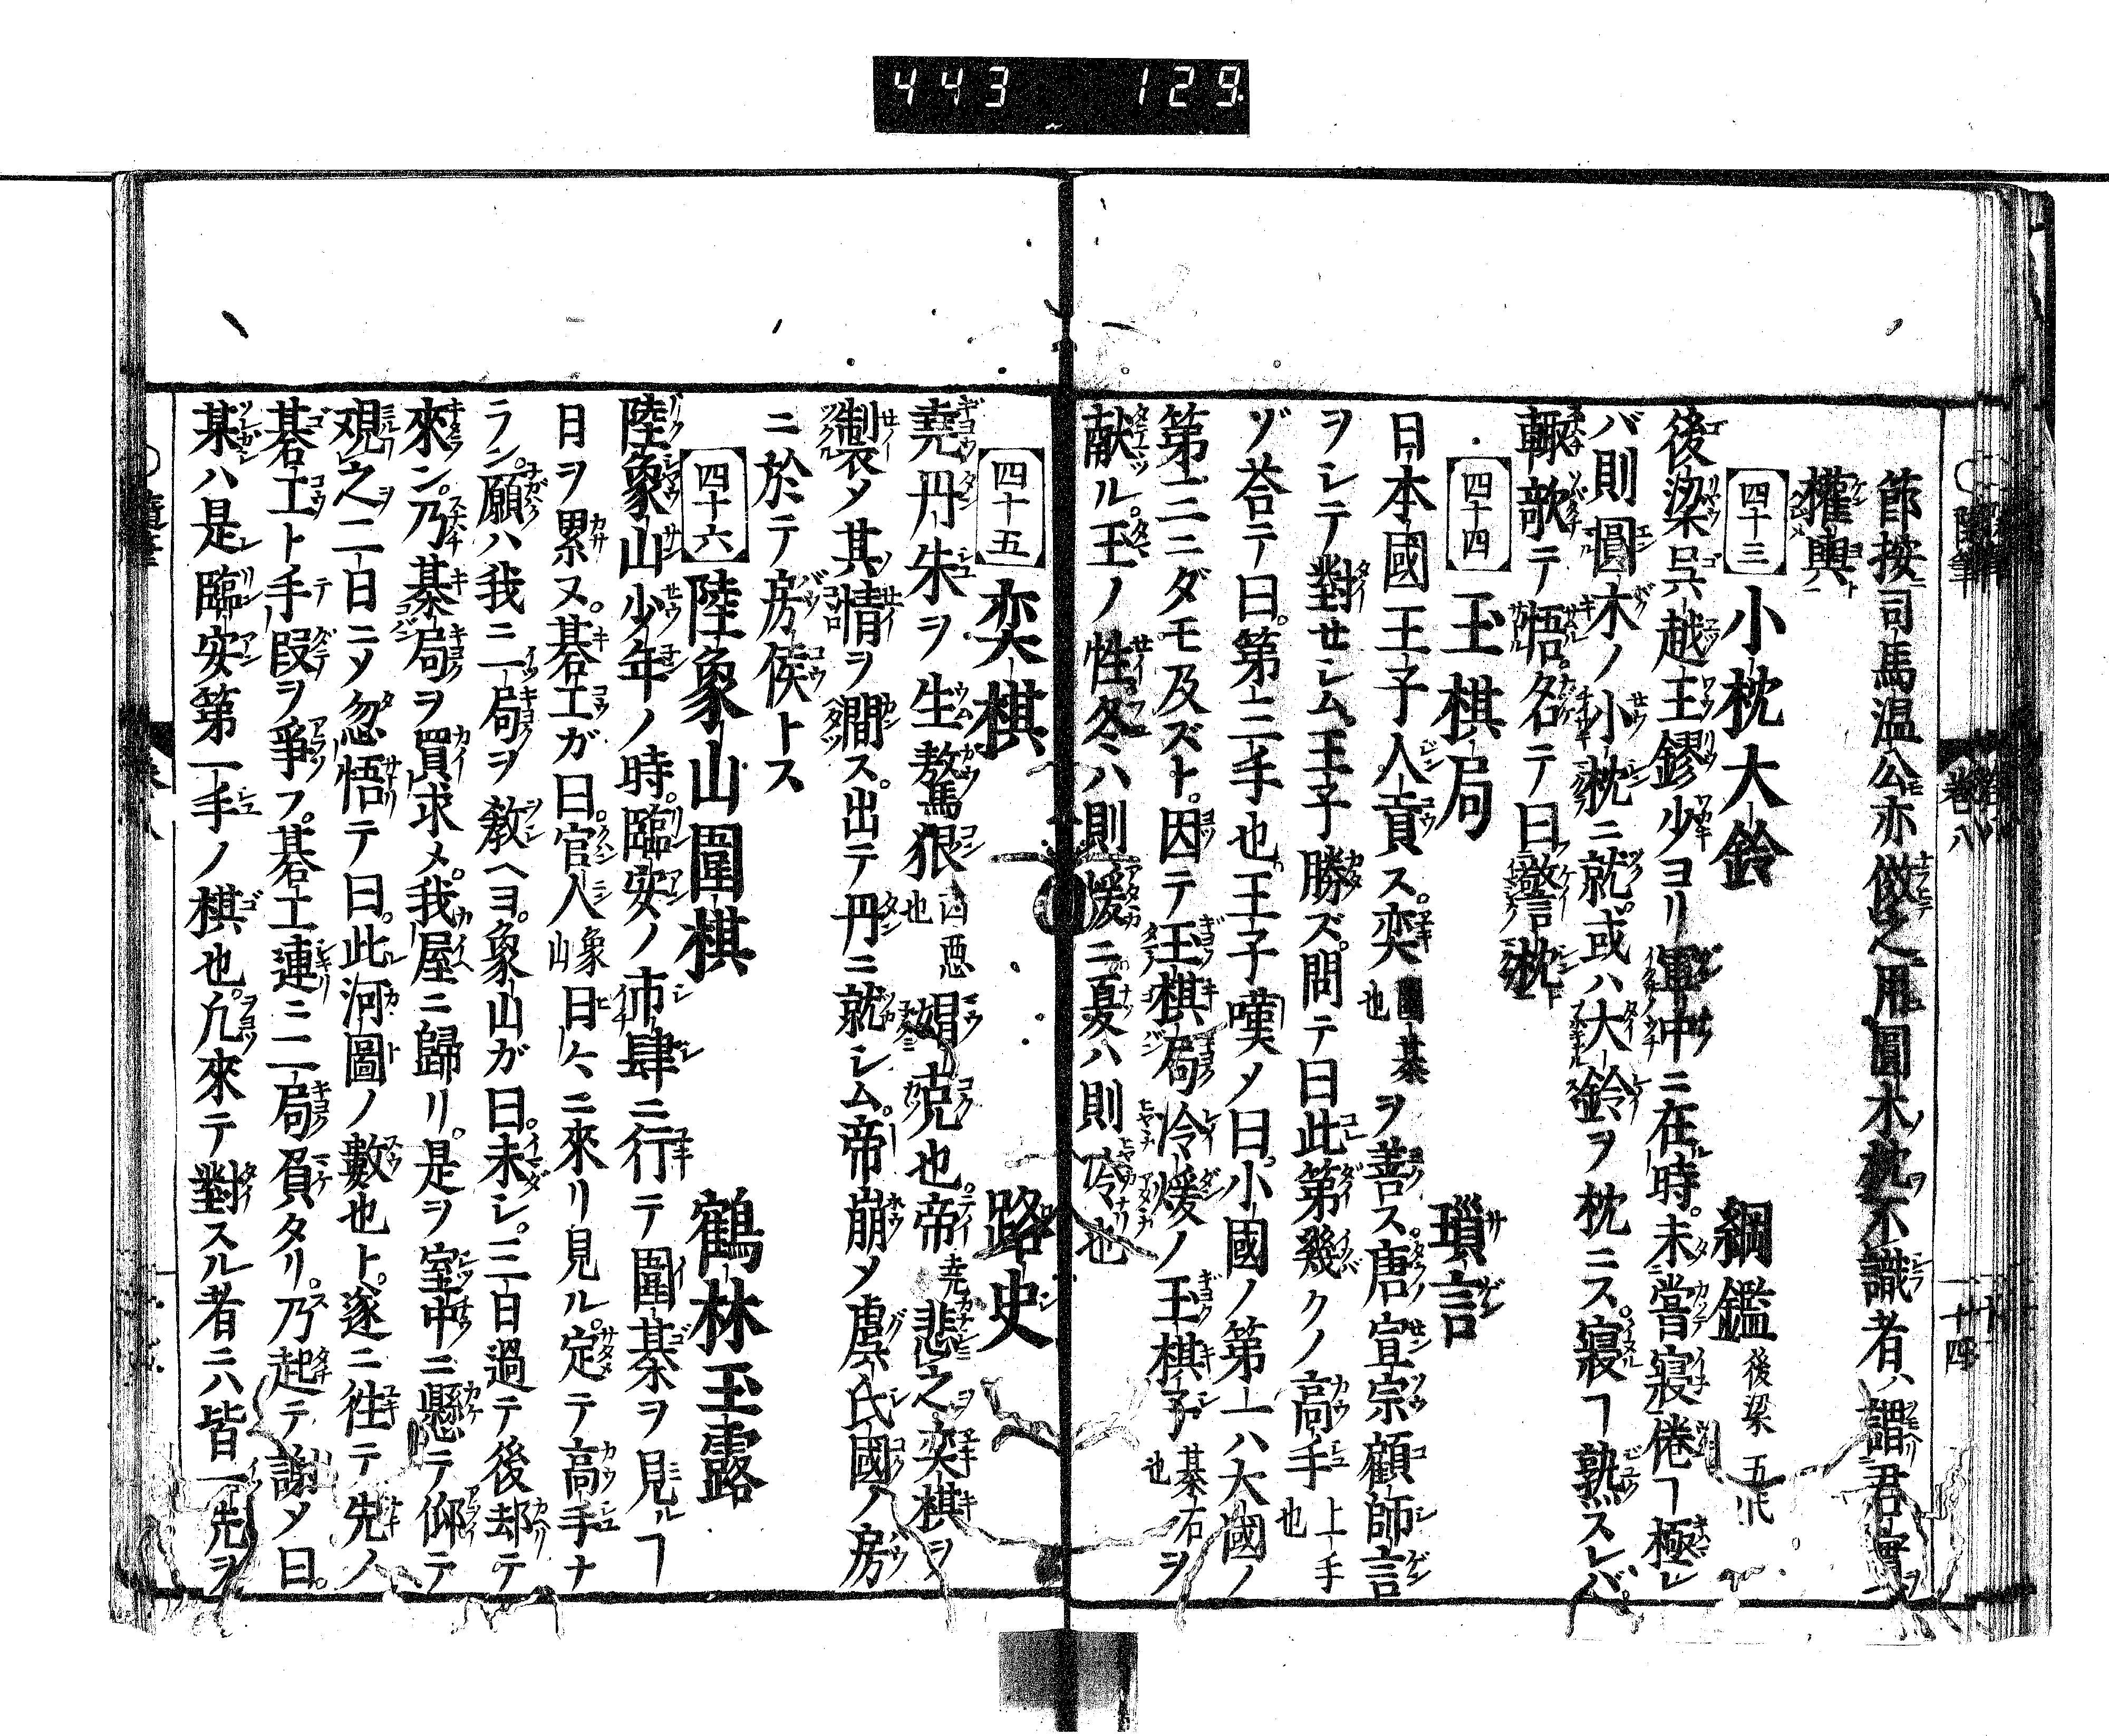 443 129
節按司馬温公亦倣之用圓木枕不識者ハ謂君實ヲ
權輿ト
四十三 小枕大鈴 綱鑑 後梁 五代
後梁呉越王鏐少ヨリ軍中ニ在時。未嘗寢倦ヿ極レ
バ則圓木ノ小枕ニ就。或ハ大鈴ヲ枕ニス。寢ヿ熟スレバ。
輙欹テ悟。名テ曰警枕ト
四十四 玉棋局 瑣言
日本國王子入貢ス。奕 圍碁也 ヲ善ス。唐宣宗顧師言
ヲシテ對せシム。王子勝ズ。問テ曰此第幾クノ高手 上手也
ゾ荅テ曰。第三手也王子嘆メ曰。小國ノ第一ハ大國ノ
第三ニダモ及ズト。因テ玉棋局冷煖ノ玉棋子 碁石也 ヲ
献ル。玉ノ性冬ハ則煖ニ夏ハ則冷也
四十五 奕棋 路史
堯丹朱ヲ生驁狠 凶惡也 媢克也。帝 堯 悲之奕棋ヲ
製メ其情ヲ澗ス。出テ丹ニ就シム。帝崩メ虞氏國ノ房
ニ於テ房侯トス
四十六 陸象山圍棋 鶴林玉露
陸象山少年ノ時。臨安ノ市肆ニ行テ圍棊ヲ見ルヿ
日ヲ累ヌ。碁工ガ曰。官人 象山 日々ニ來リ見ル。定テ高手ナ
ラン。願ハ我ニ一局ヲ敎ヘヨ。象山ガ曰。未シ。三日過テ後却テ
來ン。乃棊局ヲ買求メ。我屋ニ歸リ。是ヲ室中ニ懸テ仰テ
覌之二日ニメ忽悟テ曰。此河圖ノ數也ト。遂ニ徃テ先ノ
碁工ト手叚ヲ爭フ。碁工連ニ二局負タリ。乃起テ謝メ曰。
某ハ是臨安第一手ノ棋也。凢來テ對スル者ニハ皆一先ヲ
卷八
十四